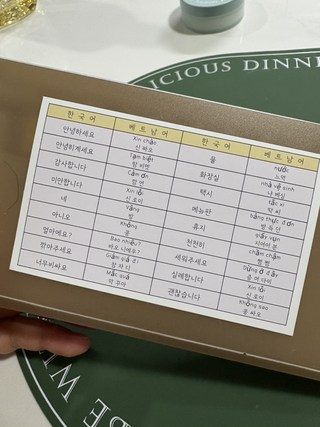 ICIOUS DINNE
한국어 베트남어 한국어 베트남어
안녕하세요 Xin chào 신 짜오 물 nước 느억
안녕히계세요 Tạm biệt 땀 비엣 화장실 nhà vệ sinh 냐 베 싱
감사합니다 Cảm ơn 깜 언 택시 tắc xi 딱 씨
미안합니다 Xin lỗi 신 로이 메뉴판 bảng thực đơn 방 특 던
네 Vâng 방 휴지 giấy vụn
아니요 Không 콩 천천히 chầm chậm 쩜 쩜
얼마예요? Bao nhiêu? 바오 니에우? 세워주세요 Dừng ở đây
깎아주세요 Giảm giá đi 실례합니다 Xin lỗi 신 로이
너무비싸요 Mắc quá 막 꾸아 괜찮습니다 Không sao 콩 싸오
BE WI